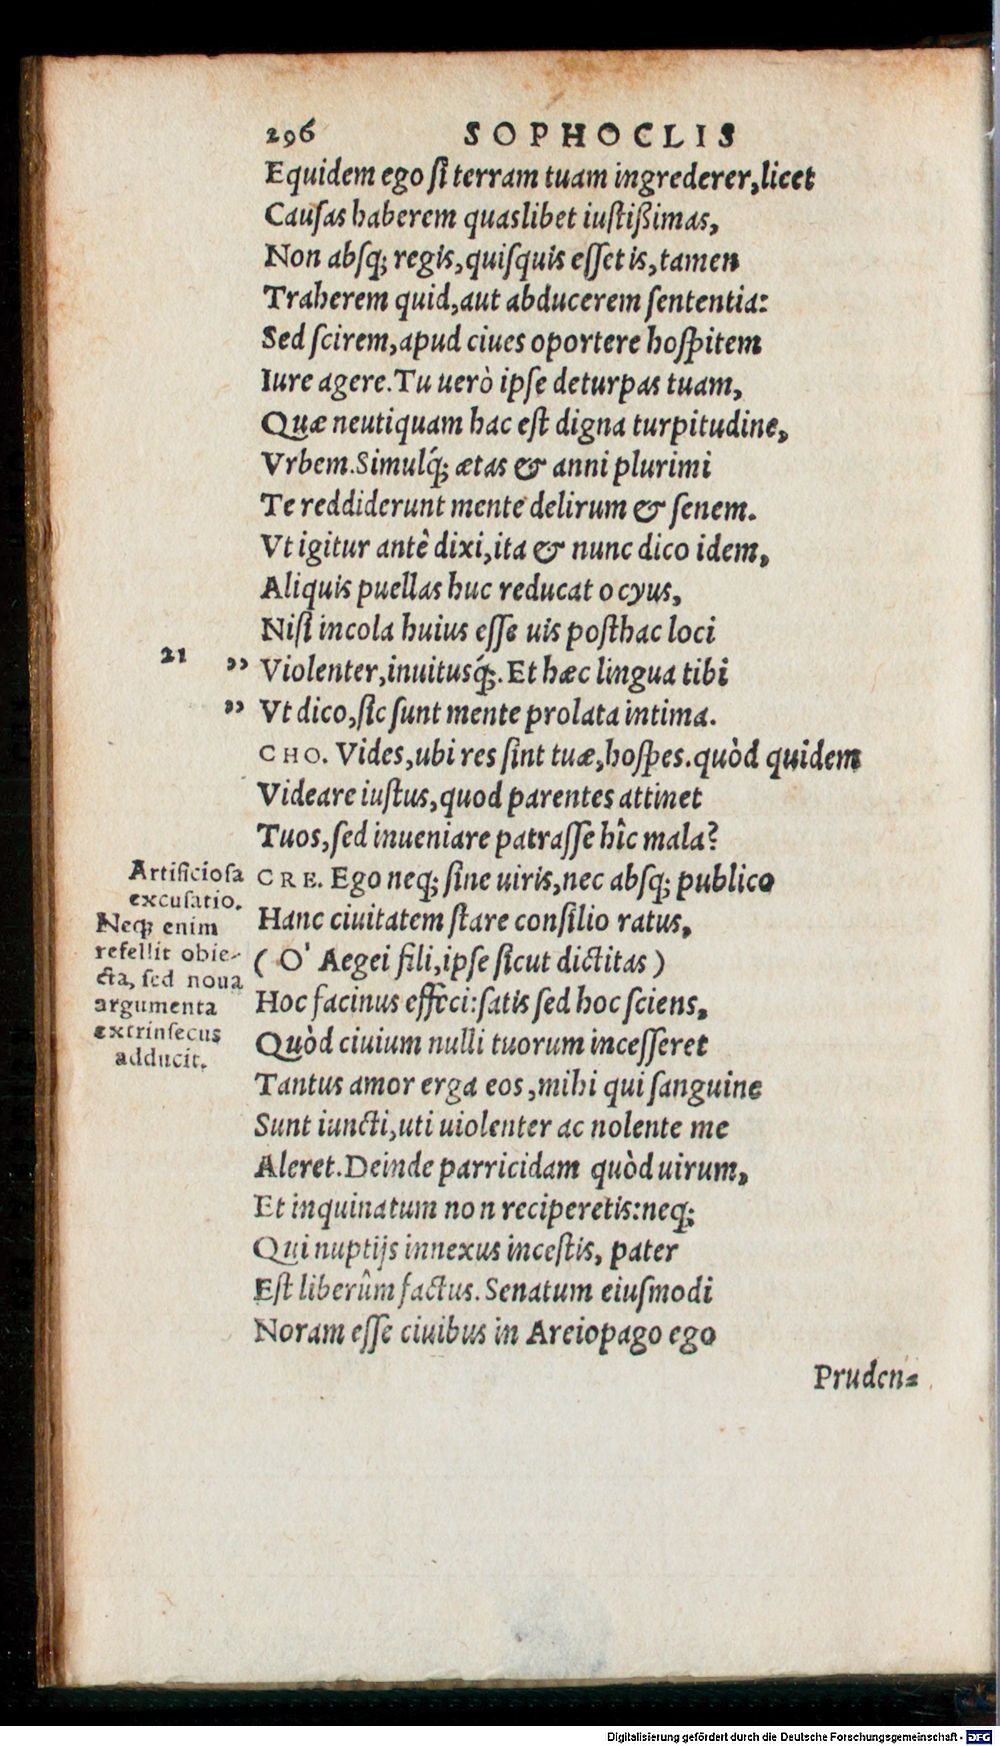 296 SOPHOCLIS
Equidem ego ſi terram tuam ingrederer, licet
Cauſas haberem quaslibet iuſtißimas,
Non abſq; regis, quiſquis eſſet is, tamen
Traherem quid, aut abducerem ſententia:
Sed ſcirem, apud ciues oportere hoſpitem
Iure agere. Tu uerò ipſe deturpas tuam,
Quæ neutiquam hac eſt digna turpitudine,
Vrbem. Simulq́; ætas & anni plurimi
Te reddiderunt mente delirum & ſenem.
Vt igitur antè dixi, ita & nunc dico idem,
Aliquis puellas huc reducat ocyus,
Niſi incola huius eſſe uis poſthac loci
21 ” Violenter, inuitusq́;. Et hæc lingua tibi
” Vt dico, ſic ſunt mente prolata intima.
CHO. Vides, ubi res ſint tuæ, hoſpes. quòd quidem
Videare iuſtus, quod parentes attinet
Tuos, ſed inueniare patraſſe hîc mala?
CRE. Ego neq; ſine uiris, nec abſq; publico
Hanc ciuitatem ſtare conſilio ratus,
( O' Aegei fili, ipſe ſicut dictitas )
Hoc facinus effeci: ſatis ſed hoc ſciens,
Quòd ciuium nulli tuorum inceſſeret
Tantus amor erga eos, mihi qui ſanguine
Sunt iuncti, uti uiolenter ac nolente me
Aleret. Deinde parricidam quòd uirum,
Et inquinatum non reciperetis: neq;
Qui nuptijs innexus inceſtis, pater
Eſt liberûm factus. Senatum eiuſmodi
Noram eſſe ciuibus in Areiopago ego
Pruden⸗
Artificioſa
excuſatio.
Neq; enim
refellit obie-
cta, ſed noua
argumenta
extrinſecus
adducit.
Digitalisierung gefördert durch die Deutsche Forschungsgemeinschaft - DFG